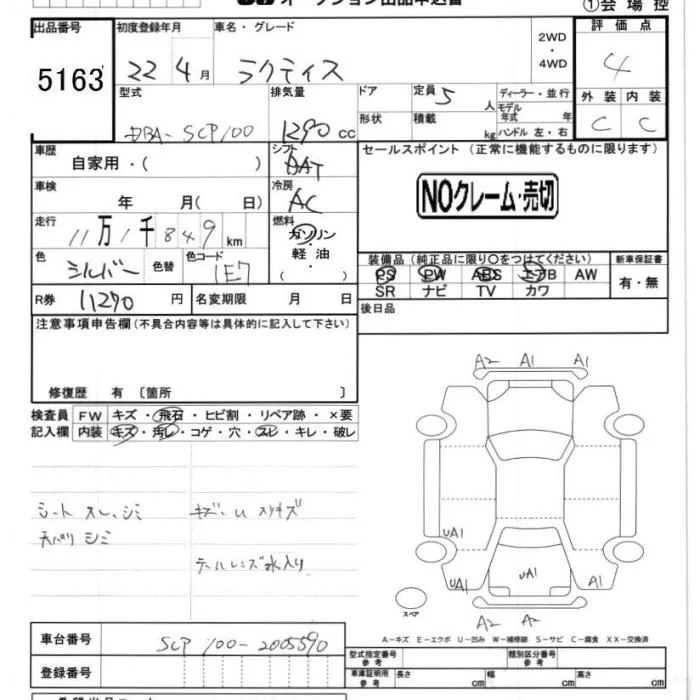 ①会場控
出品番号 初度登録年月 車名・グレード 2WD・4WD 評価点
5163 22年4月 ラクティス 4
型式 排気量 ドア 定員 5人 ディーラー・並行 外装 内装
DBA-SCP100 1290cc 形状 積載 kg モデル年式 年 ハンドル左・右 C C
車歴 シフト セールスポイント(正常に機能するものに限ります)
自家用・( ) AT
車検 冷房 NOクレーム・売切
年 月( 日) AC
走行 燃料
11万1千849km ガソリン・軽油・( )
色 シルバー 色替 色コード 1E7
装備品(純正品に限り○をつけてください) 新車保証書
PS PW ABS エアB AW 有・無
SR ナビ TV カワ
R券 11290円 名変期限 月 日 後日品
注意事項申告欄(不具合内容等は具体的に記入して下さい)
修復歴 有 〔箇所 〕
検査員 FW キズ・飛石・ヒビ割・リペア跡・×要
記入欄 内装 キズ・汚レ・コゲ・穴・スレ・キレ・破レ
シート スレ、シミ キズ・U スリキズ
天バリ シミ
テールレンズ水入り
A2 A1 A1
UA1
UA1 UA1 A1
スペア
A2 A2
A-キズ E-エクボ U-凹み W-補修跡 S-サビ C-腐食 XX-交換済
車台番号 SCP100-2005590
型式指定番号 参考 類別区分番号 参考
登録番号 車庫証明用 参考 長さ cm 幅 cm 高さ cm